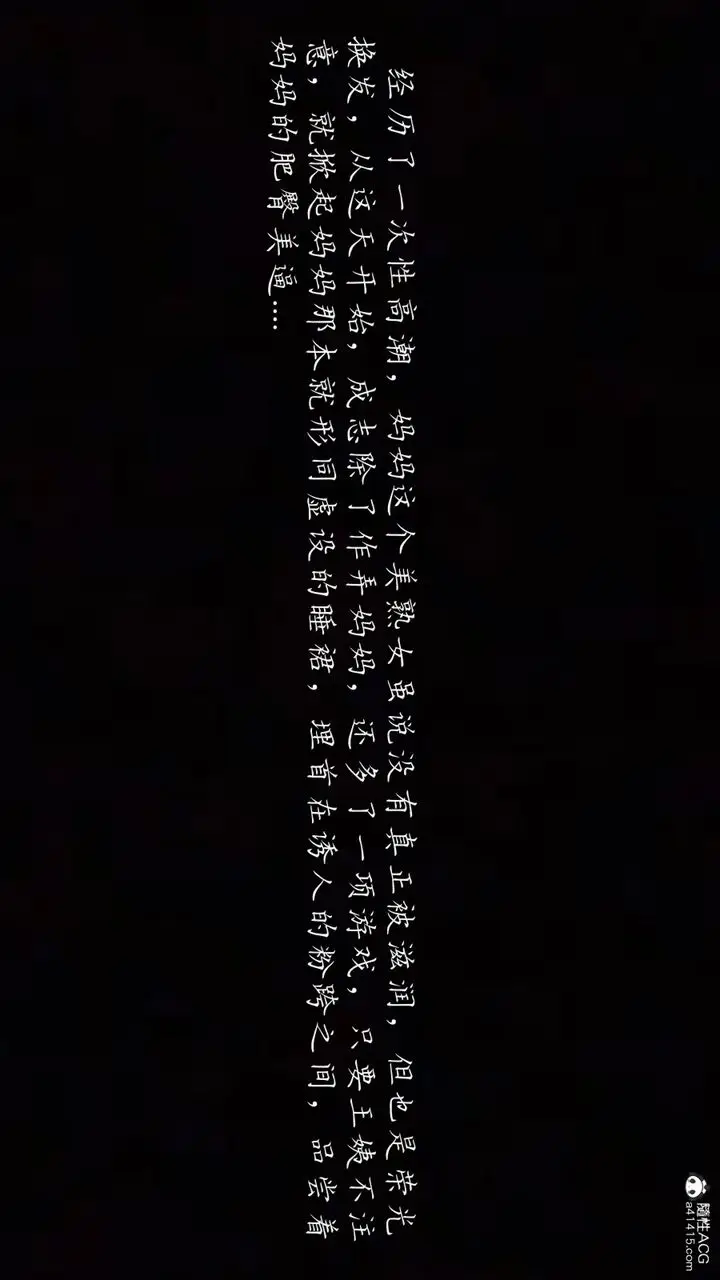 经历了一次性高潮，妈妈这个美熟女虽说没有真正被滋润，但也是荣光
换发，从这天开始，成志除了作弄妈妈，还多了一项游戏，只要王姨不注
意，就掀起妈妈那本就形同虚设的睡裙，埋首在诱人的粉跨之间，品尝着
妈妈的肥臀美逼....
隨性ACG
a41415.com